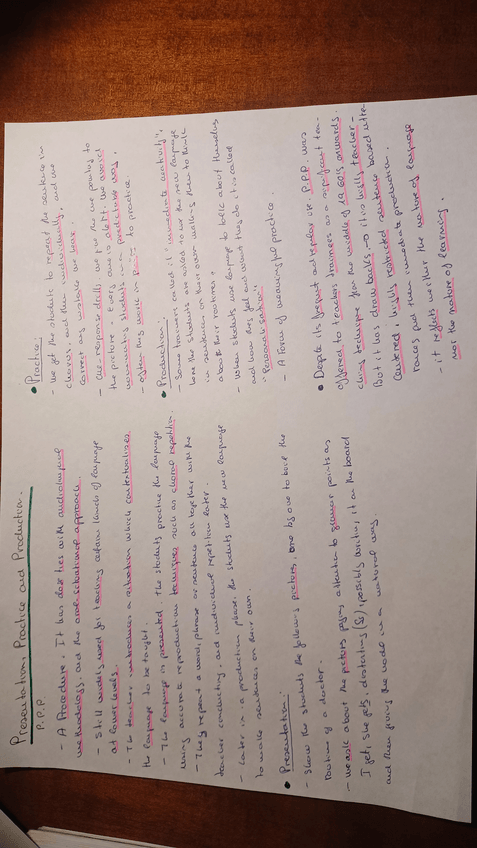 Presentation, Practice and Production.
P.P.P.
- A Procedure. It has close ties with audiolingual
methodology, and the oral-situational approach.
- Still widely used for teaching certain kinds of language
at lower levels.
- The teacher introduces a situation which contextualizes
the language to be taught.
- The language is presented. The students practice the language
using accurate reproduction techniques such as choral repetition.
- They repeat a word, phrase or sentence all together with the
teacher conducting, and individual repetition later.
- Later in a production phase, the students use the new language
to make sentences on their own.
• Presentation:
- Show the students the following pictures, one by one to build the
routine of a doctor.
- we ask about the pictures paying attention to grammar points as
I get, she gets, possibly writing it on the board
and then giving the model in a natural way
• Practice:
- We get the students to repeat the sentence in
chorus, and then individually, and we
correct any mistakes we hear.
- Cue-response drills
the picture.
in a predictable way.
- often they work in to practice.
• Production:
- Some trainers called it "immediate creativity",
here the students are asked to use the new language
in sentences on their own making them to think
about their routines.
- When students use language to talk about themselves
and how they feel and what they do it is called
"Personalisation"
- A Form of meaningful practice.
• Despite its frequent use P.P.P. was
offered to teachers trainees as a significant tea-
ching technique from the middle of 1960's onwards.
But it has drawbacks → it is highly teacher-
centered, highly restricted sentence based utte-
rances and then immediate production.
- it reflects neither the nature of language
nor the nature of learning.